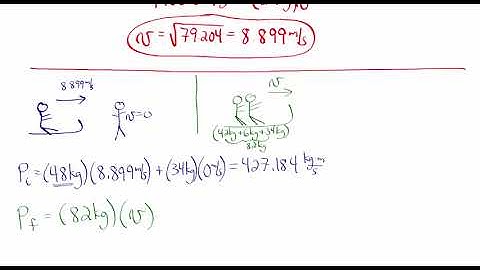 v = √79204 = 8.899 m/s
8.899 m/s
v
v=0
(42kg+6kg+34kg)
82kg
Pᵢ = (48kg)(8.899 m/s) + (34kg)(0 m/s) = 427.184 kg·m/s
P_f = (82kg)(v)